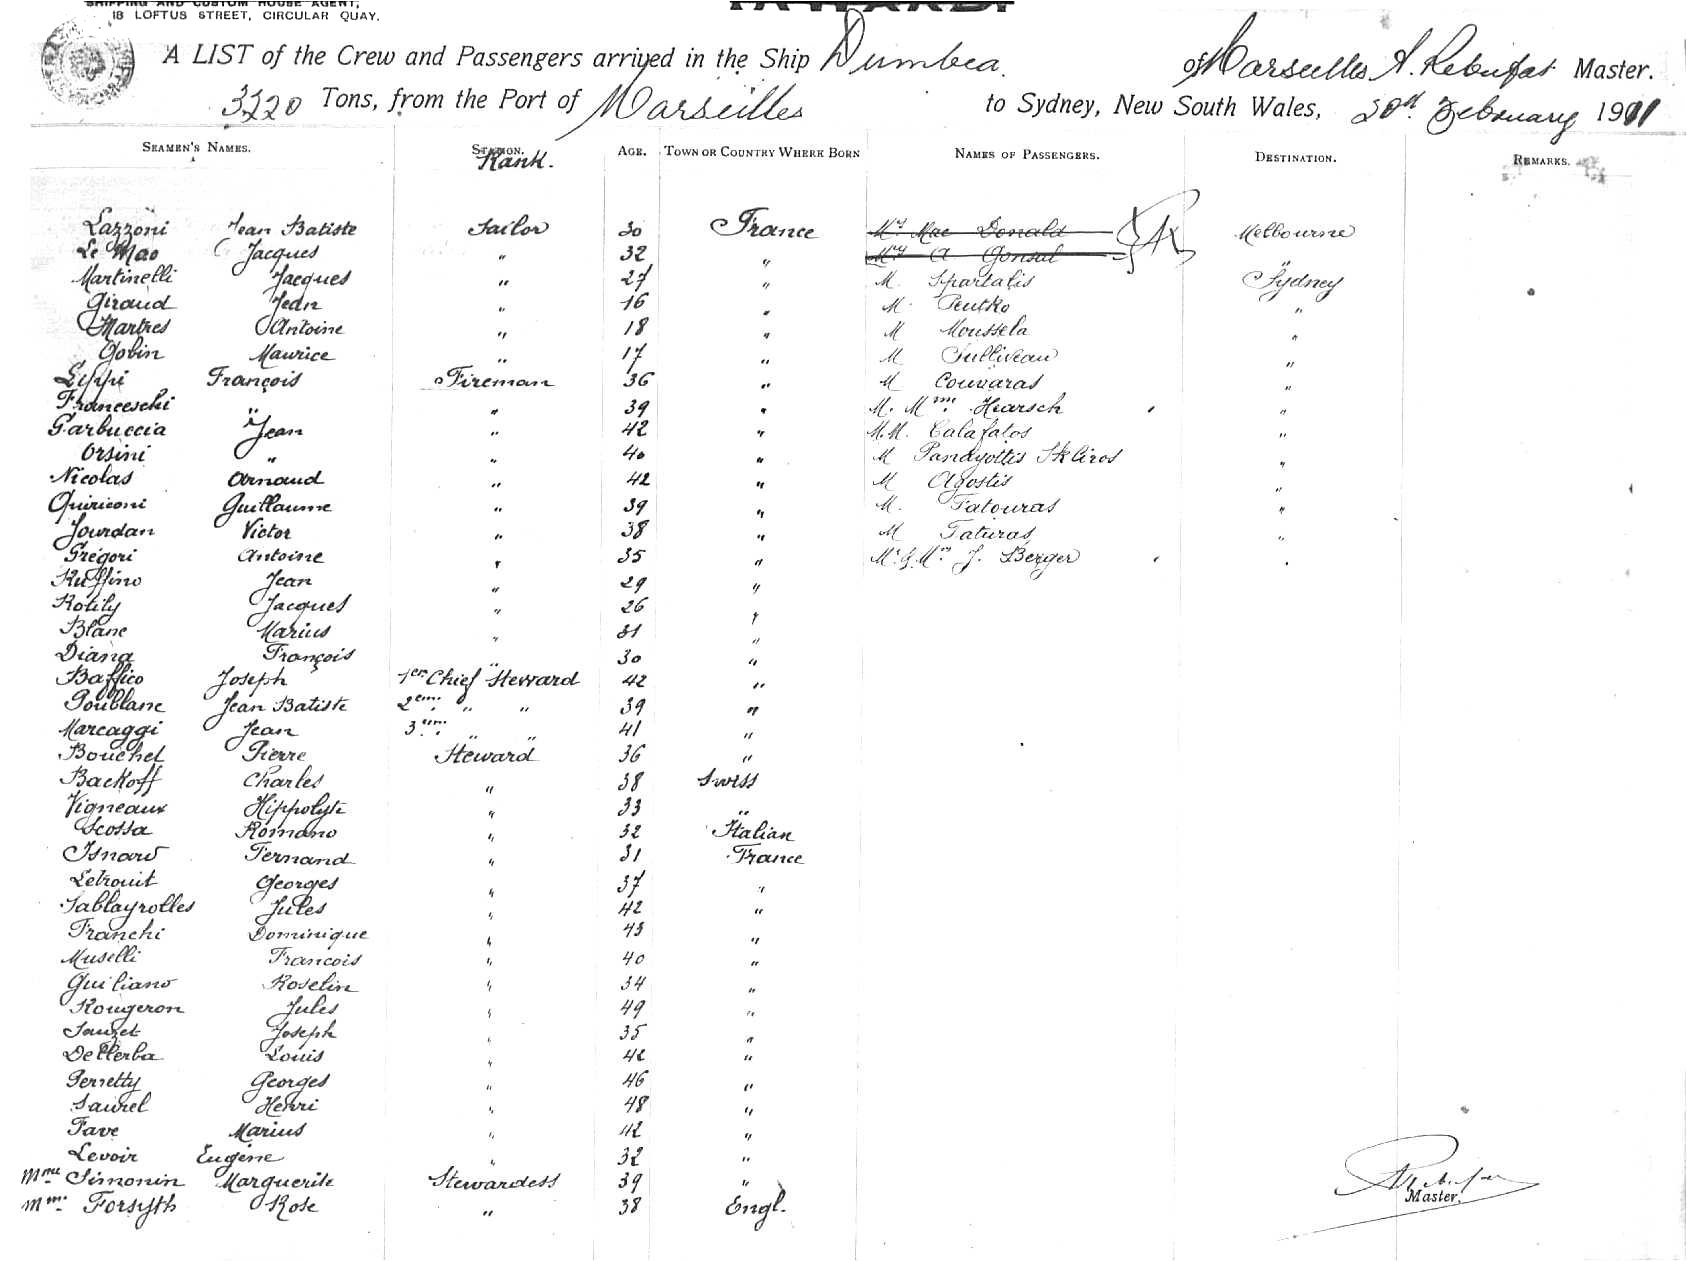 SHIPPING AND CUSTOM HOUSE AGENT,
18 LOFTUS STREET, CIRCULAR QUAY.
INWARD.
A LIST of the Crew and Passengers arrived in the Ship Dumbea of Marseilles A. Rebufat Master.
3220 Tons, from the Port of Marseilles to Sydney, New South Wales, 20th February 1911
SEAMEN'S NAMES. STATION. Rank. AGE. TOWN OR COUNTRY WHERE BORN NAMES OF PASSENGERS. DESTINATION. REMARKS.
Lazzoni Jean Batiste Sailor 30 France Mr Mac Donald Melbourne
Le Mao Jacques " 32 " A Gonsal "
Martinelli Jacques " 27 " M. Spartalis Sydney
Giraud Jean " 16 " M. Peutko "
Martres Antoine " 18 " M Moussela "
Gobin Maurice " 17 " M Sulliveau "
Lippi François Fireman 36 " M Couvaras "
Franceschi " " 39 " M. Mme Hearsch "
Garbuccia Jean " 42 " M.M. Calafatos "
Orsini " " 40 " M Panayottis Skliros "
Nicolas Arnaud " 42 " M Agostis "
Quiriconi Guillaume " 39 " M. Fatouras "
Jourdan Victor " 38 " M Faturas "
Grégori Antoine " 35 " Mr & Mrs J. Berger .
Ruffino Jean " 29 "
Rotily Jacques " 26 "
Blanc Marius " 31 "
Diana François " 30 "
Baffico Joseph 1er Chief Steward 42 "
Poublanc Jean Batiste 2em. " " 39 "
Marcaggi Jean 3em. " " 41 "
Bouchet Pierre Steward 36 "
Backoff Charles " 38 Swiss
Vigneaux Hippolyte " 33 "
Scossa Romano " 32 Italian
Isnard Fernand " 31 France
Letrouit Georges " 37 "
Sablayrolles Jules " 42 "
Franchi Dominique " 43 "
Muselli Francois " 40 "
Guiliano Roselin " 34 "
Rougeron Jules " 49 "
Sauzet Joseph " 35 "
Dellerba Louis " 42 "
Perretty Georges " 46 "
Saurel Henri " 48 "
Fave Marius " 42 "
Levoir Eugène " 32 "
Mme Simonin Marguerite Stewardess 39 "
Mme. Forsyth Rose " 38 Engl.
A Rebufat
Master.